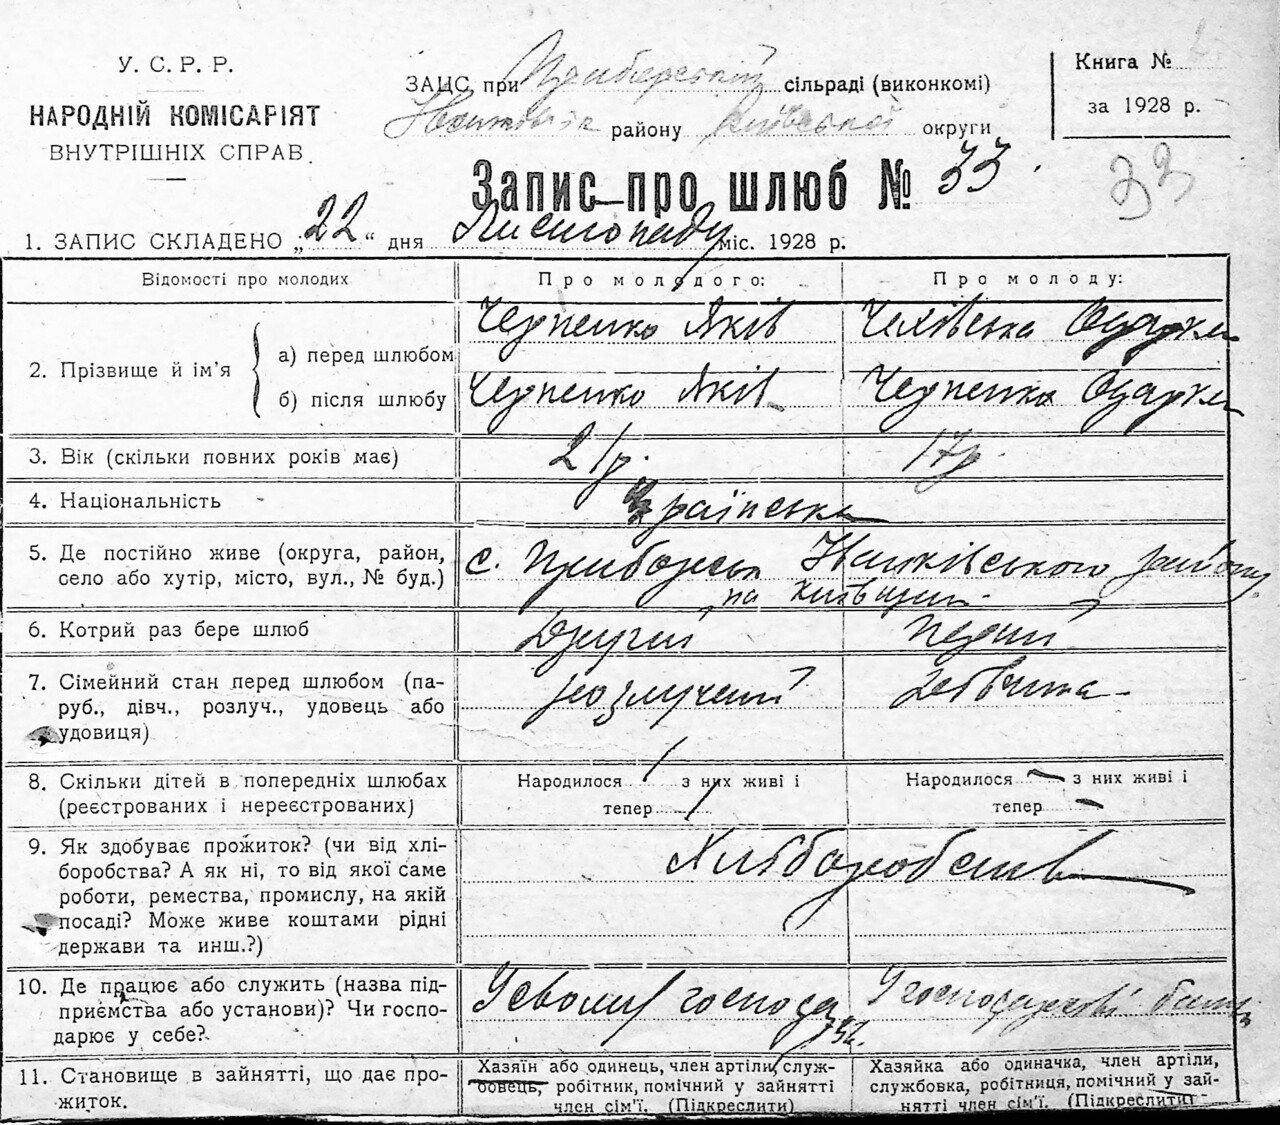 У. С. Р. Р.
НАРОДНІЙ КОМІСАРІЯТ
ВНУТРІШНІХ СПРАВ.
ЗАЦС, при Прибірській сільраді (виконкомі)
району Київської округи
Книга №
за 1928 р.
Запис про шлюб № 33.
33
1. ЗАПИС СКЛАДЕНО „22“ дня Листопаду міс. 1928 р.
Відомості про молодих
Про молодого:
Про молоду:
2. Прізвище й ім’я
а) перед шлюбом
Черпенко Яків
Чехівська Одарка
б) після шлюбу
Черпенко Яків
Черпенко Одарка
3. Вік (скільки повних років має)
21р.
17р.
4. Національність
Українська
5. Де постійно живе (округа, район,
село або хутір, місто, вул., № буд.)
с. Прибірськ Іванківського району
на Київщині
6. Котрий раз бере шлюб
Другий
Перший
7. Сімейний стан перед шлюбом (па-
руб., дівч., розлуч., удовець або
удовиця)
розлучений
дівчина
8. Скільки дітей в попередніх шлюбах
(реєстрованих і нереєстрованих)
Народилося 1 з них живі і
тепер 1
Народилося – з них живі і
тепер –
9. Як здобуває прожиток? (чи від хлі-
боробства? А як ні, то від якої саме
роботи, ремества, промислу, на якій
посаді? Може живе коштами рідні
держави та инш.?)
Хліборобств
10. Де працює або служить (назва під-
приємства або установи)? Чи госпо-
дарює у себе?
У своему господар
У господарстві батьк
11. Становище в зайнятті, що дає про-
житок.
Хазяїн або одинець, член артіли, служ-
бовець, робітник, помічний у зайнятті
член сім’ї. (Підкреслити)
Хазяйка або одиначка, член артіли,
службовка, робітниця, помічний у зай-
нятті член сім’ї. (Підкреслити)